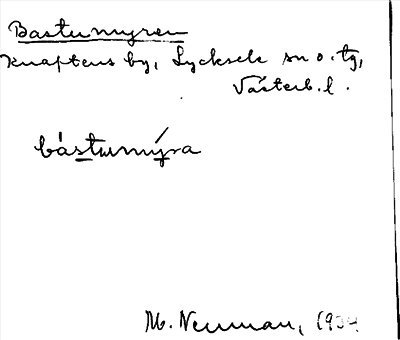 Bastumyren
Knaptens by, Lycksele sn o. tg,
Västerb. l.
bástumýra
M. Neuman, 1934